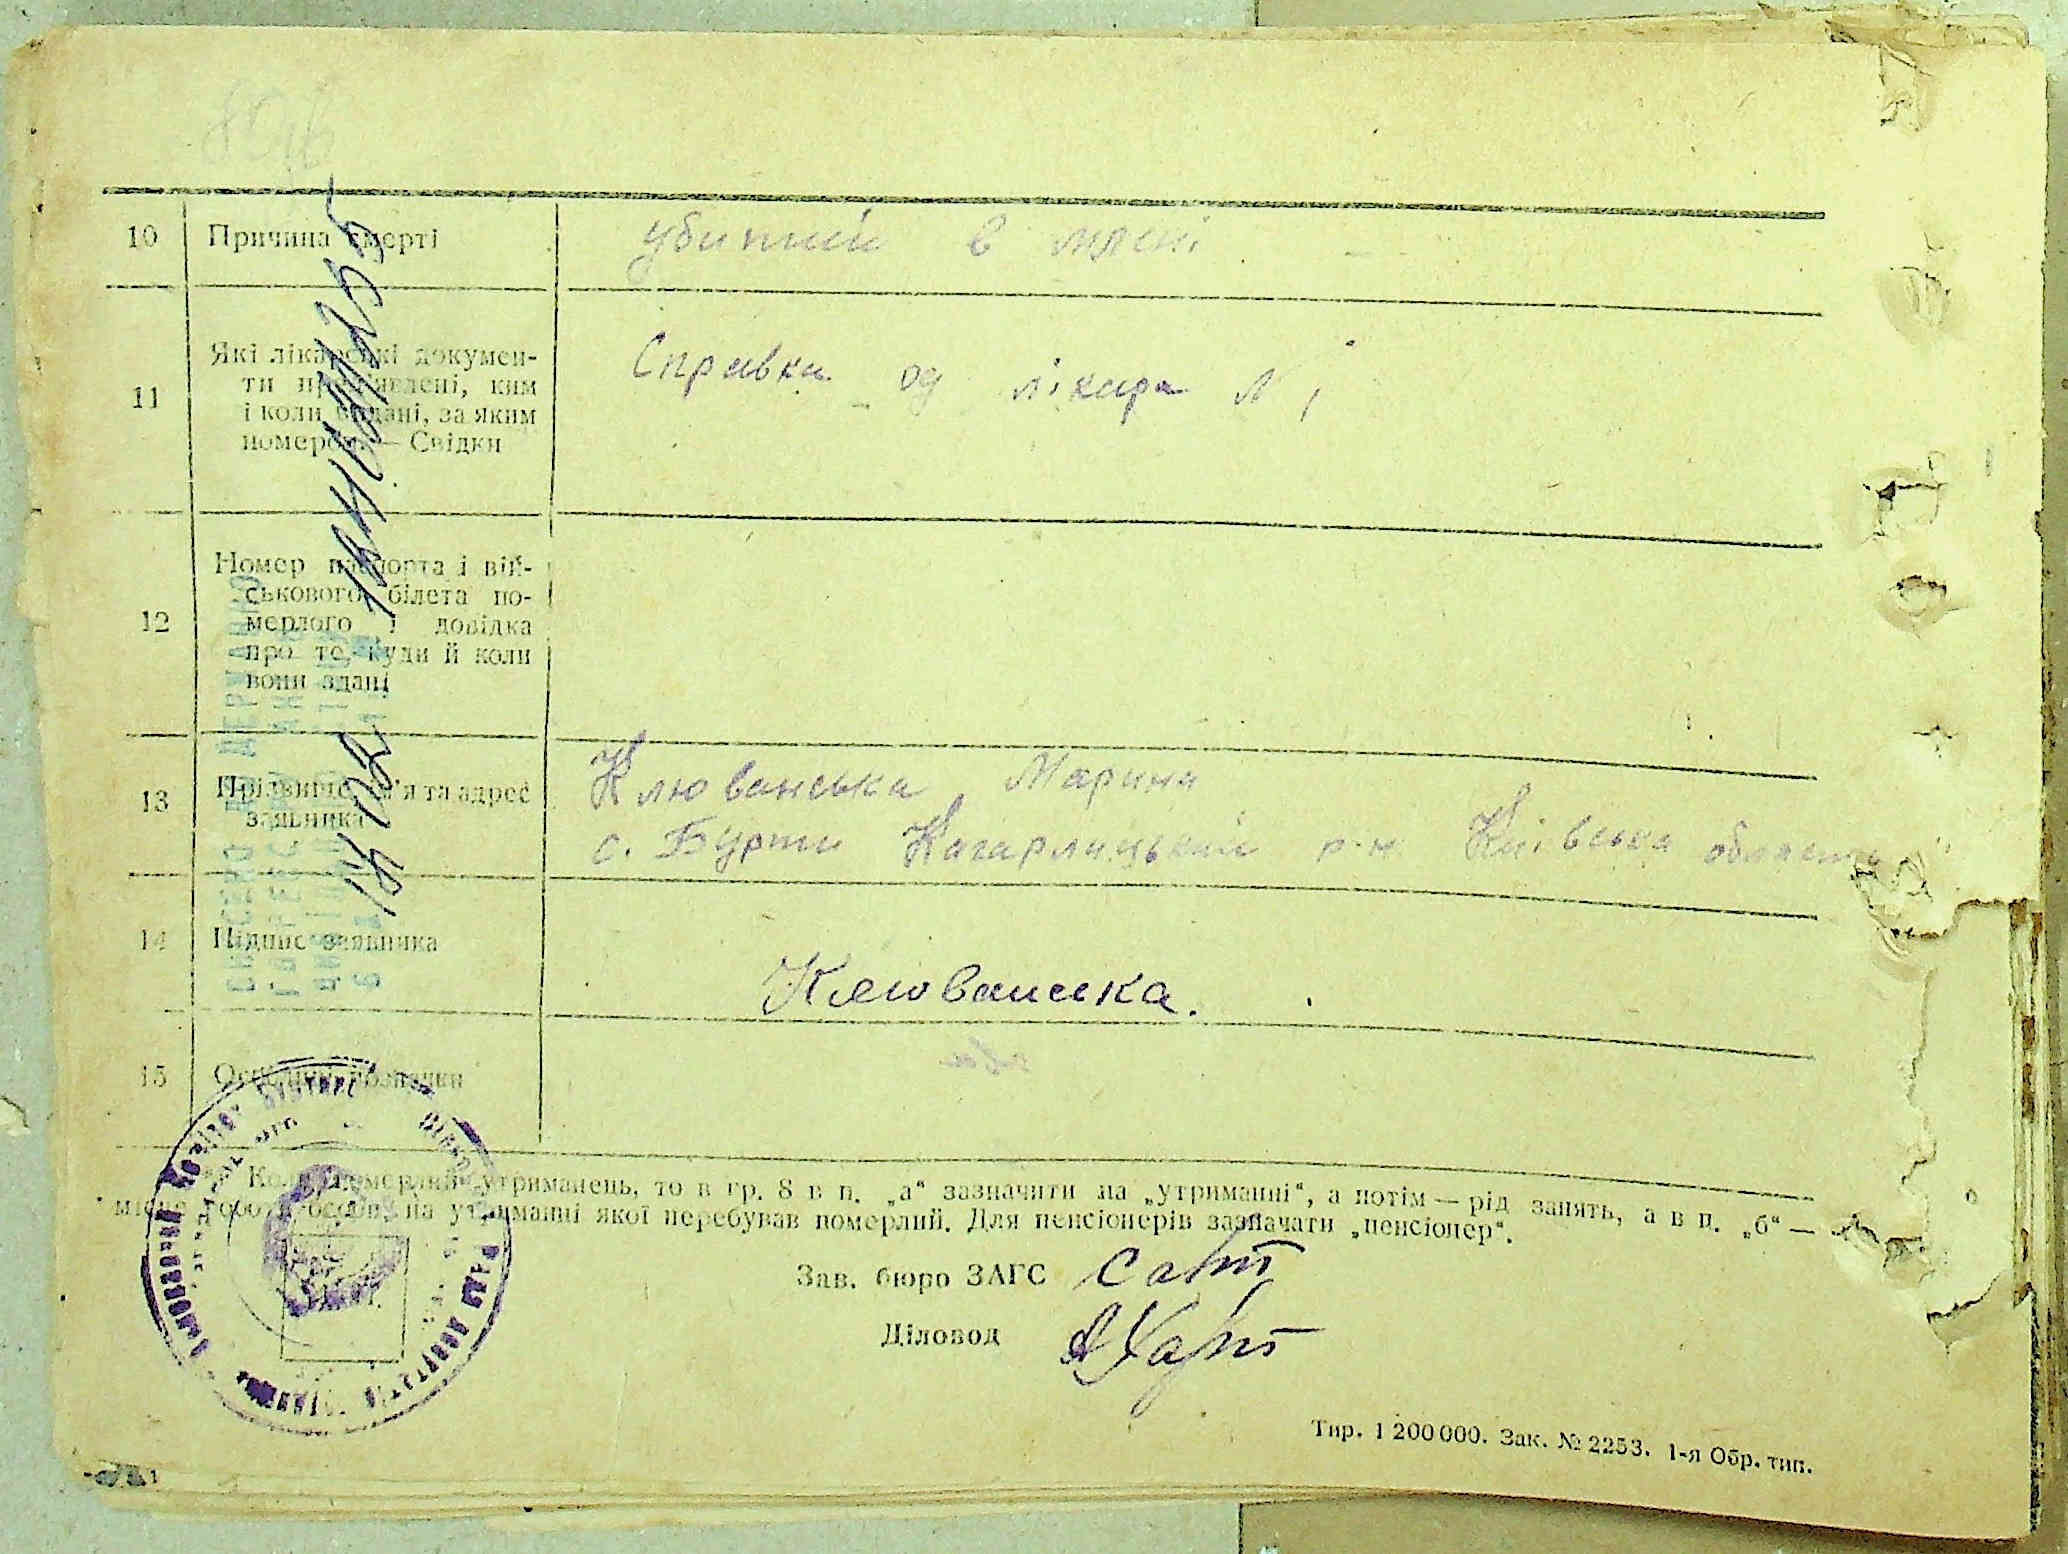 10 Причина смерті убитий в
11 Які лікарські докумен-
ти пред'явлені, ким
і коли видані, за яким
номером — Свідки
Справка од лікаря N 1
12 Номер паспорта і вій-
ськового білета по-
мерлого і довідка
про те, куди й коли
вони здані
13 Прізвище, ім'я та адрес
заявника
Клюванська Марина
с. Бурти Кагарлицький р-н Київська область
14 Підпис заявника
Клюванска.
15 Особливі позначки
Коли померлий утриманець, то в гр. 8 в п. „а“ зазначити на „утриманні“, а потім — рід занять, а в п. „б“ —
місце роботи особи, на утриманні якої перебував померлий. Для пенсіонерів зазначати „пенсіонер“.
Зав. бюро ЗАГС
Діловод
Тир. 1 200 000. Зак. № 2253. 1-я Обр. тип.